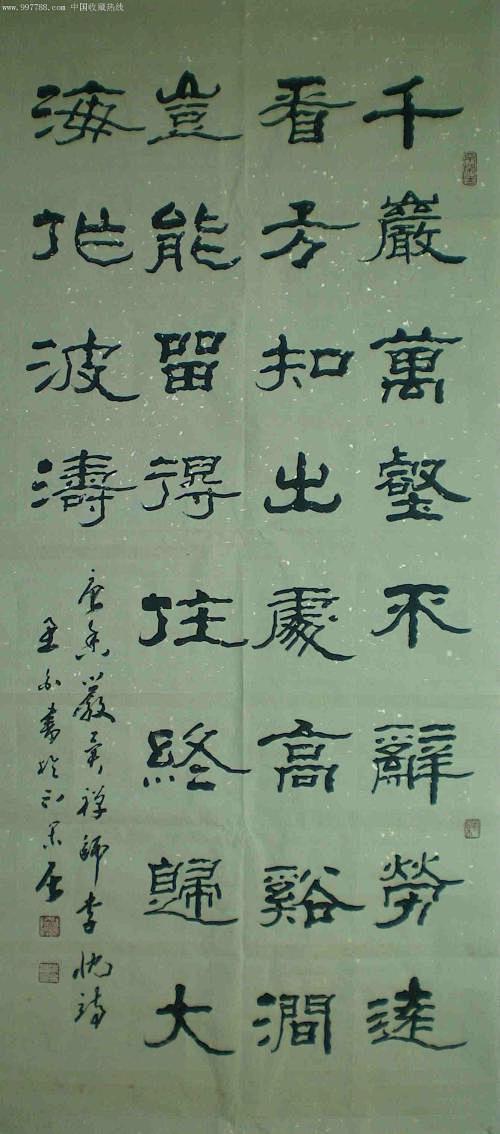 www.997788.com 中国收藏热线
千巖萬壑不辭勞遠
看方知出處高谿澗
豈能留得住終歸大
海作波濤
唐香嚴禪師李忱詩
書於